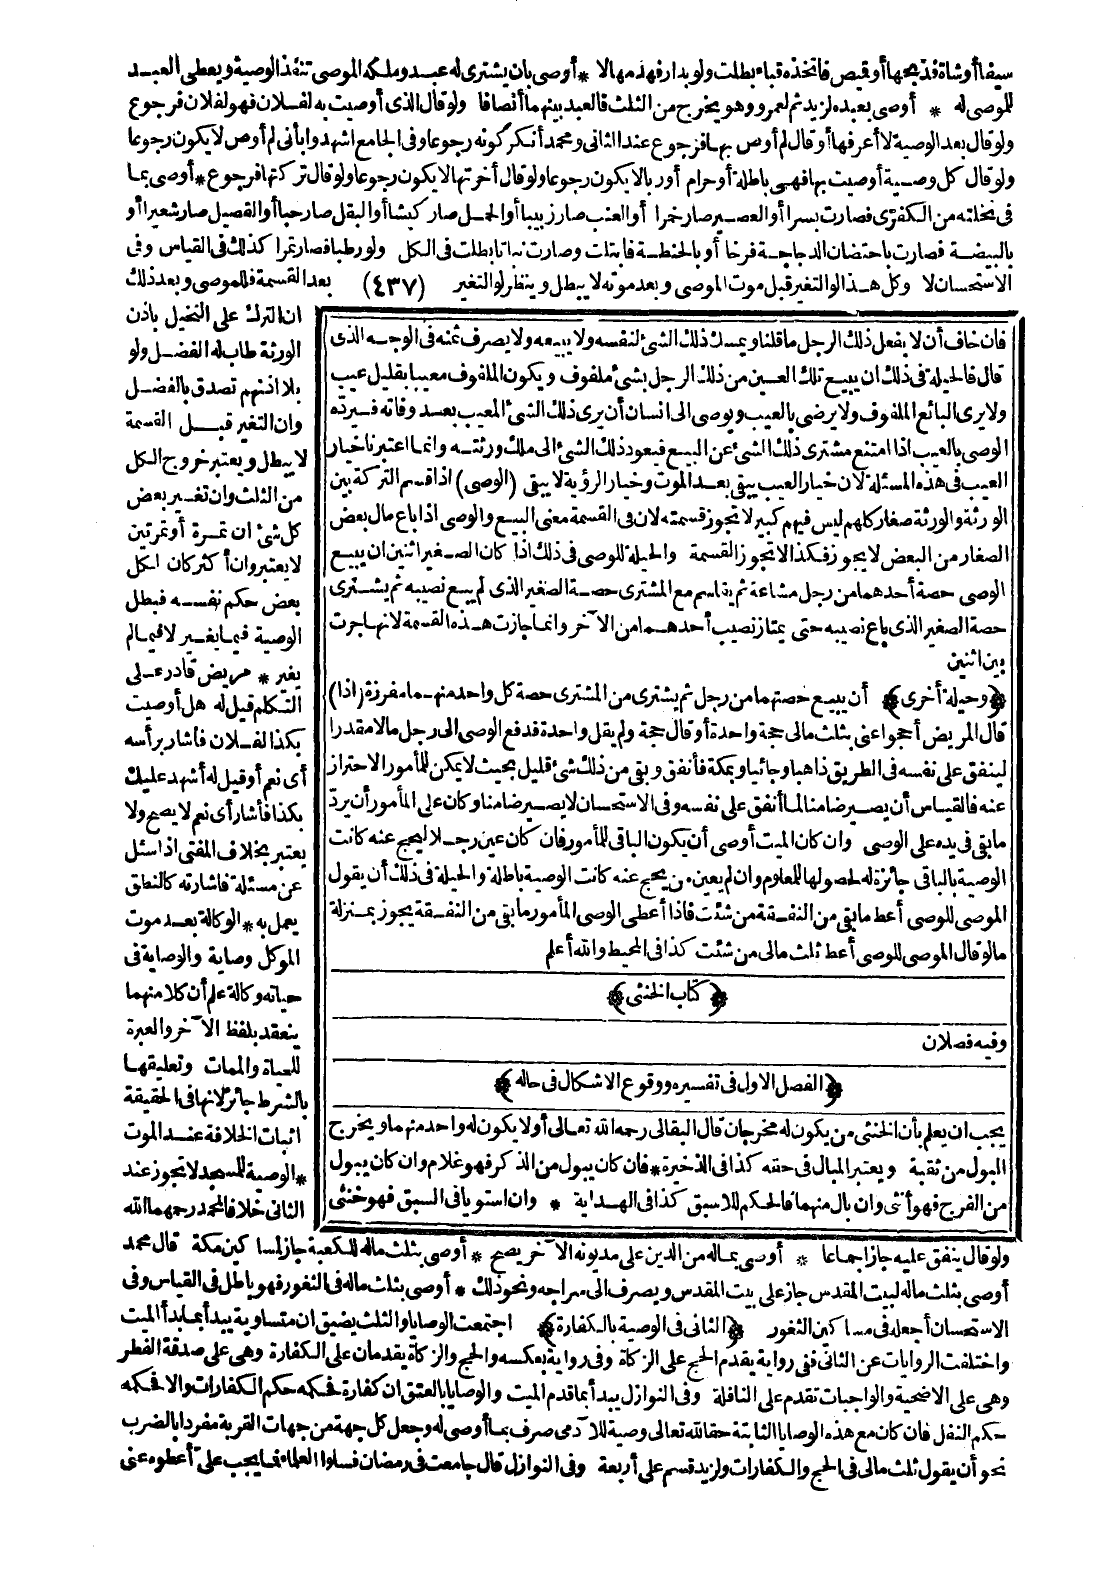 سيفا أو شاة فذبحها أو قميص فاتخذه قباء بطلت ولو بدار فهدمها لا * أوصى بان يشترى له عبد وملكه الموصى تنفذ الوصية ويعطى العبد
للموصى له * أوصى بعبده لزيد ثم لعمرو وهو يخرج من الثلث فالعبد بينهما أنصافا ولو قال الذى أوصيت به لفلان فهو لفلان فرجوع
ولو قال بعد الوصية لا أعرفها أو قال لم أوص بها فرجوع عند الثانى ومحمد أنكر كونه رجوعا وفى الجامع اشهدوا بأنى لم أوص لا يكون رجوعا
ولو قال كل وصية أوصيت بها فهى باطلة أو حرام أو ربا لا يكون رجوعا ولو قال أخرتها لا يكون رجوعا ولو قال تركتها فرجوع * أوصى بما
فى نخلته من الكفرى فصارت بسرا أو العصير صار خمرا أو العنب صار زبيبا أو الحمل صار كبشا أو البقل صار حبا أو الفصيل صار شعيرا أو
بالبيضة فصارت باحتضان الدجاجة فرخا أو بالحنطة فابتلت وصارت نباتا بطلت فى الكل ولو رطبا فصار تمرا كذلك فى القياس وفى
الاستحسان لا وكل هذا لو التغير قبل موت الموصى وبعد موته لا يبطل وينظر لو التغير (٤٣٧) بعد القسمة فللموصى وبعد ذلك
ان الترك على النخيل باذن
الورثة طاب له الفضل ولو
بلا اذنهم تصدق بالفضل
وان التغير قبل القسمة
لا يبطل ويعتبر خروج الكل
من الثلث وان تغير بعض
كل شئ ان تمرة أو تمرتين
لا يعتبر وان أكثر كان لكل
بعض حكم نفسه فبطل
الوصية فيما يغير لا فيما لم
يغير * مريض قادر على
التكلم قيل له هل أوصيت
بكذا لفلان فأشار برأسه
أى نعم أو قيل له أشهد عليك
بكذا فأشار أى نعم لا يصح ولا
يعتبر بخلاف المفتى اذا سئل
عن مسئلة فاشارته كالنطق
يعمل به * الوكالة بعد موت
الموكل وصاية والوصاية فى
حياته وكالة علم أن كلا منهما
ينعقد بلفظ الآخر والعبرة
للحياة والممات وتعليقها
بالشرط جائز لانها فى الحقيقة
اثبات الخلافة عند الموت
* الوصية للمسجد لا تجوز عند
الثانى خلافا لمحمد رحمهما الله
فان خاف أن لا يفعل ذلك الرجل ما قلنا ويمسك ذلك الشئ لنفسه ولا يبيعه ولا يصرف ثمنه فى الوجه الذى
قال فالحيلة فى ذلك ان يبيع تلك العين من ذلك الرجل بشئ ملفوف ويكون الملفوف معيبا بقليل عيب
ولا يرى البائع الملفوف ولا يرضى بالعيب ويوصى الى انسان أن يرى ذلك الشئ المعيب بعد وفاته فيرده
الوصى بالعيب اذا امتنع مشترى ذلك الشئ عن البيع فيعود ذلك الشئ الى ملك ورثته وانما اعتبرنا خيار
العيب فى هذه المسئلة لان خيار العيب يبقى بعد الموت وخيار الرؤية لا يبقى (الوصى) اذا قسم التركة بين
الورثة والورثة صغار كلهم ليس فيهم كبير لا تجوز قسمته لان فى القسمة معنى البيع والوصى اذا باع مال بعض
الصغار من البعض لا يجوز فكذا لا تجوز القسمة والحيلة للوصى فى ذلك اذا كان الصغير اثنين ان يبيع
الوصى حصة أحدهما من رجل مشاعة ثم يقاسم مع المشترى حصة الصغير الذى لم يبع نصيبه ثم يشترى
حصة الصغير الذى باع نصيبه حتى يمتاز نصيب أحدهما من الآخر وانما جازت هذه القسمة لانها جرت
بين اثنين
﴿وحيلة أخرى﴾ أن يبيع حصتهما من رجل ثم يشترى من المشترى حصة كل واحد منهما مفرزة (اذا)
قال المريض أحجوا عنى بثلث مالى حجة واحدة أو قال حجة ولم يقل واحدة فدفع الوصى الى رجل مالا مقدرا
لينفق على نفسه فى الطريق ذاهبا وجائيا وبمكة فأنفق وبقى من ذلك شئ قليل بحيث لا يمكن للمأمور الاحتراز
عنه فالقياس أن يصير ضامنا لما أنفق على نفسه وفى الاستحسان لا يصير ضامنا وكان على المأمور أن يرد
ما بقى فى يده على الوصى وان كان الميت أوصى أن يكون الباقى للمأمور فان كان عين رجلا ليحج عنه كانت
الوصية بالباقى جائزة له لحصولها للمعلوم وان لم يعين من يحج عنه كانت الوصية باطلة والحيلة فى ذلك أن يقول
الموصى للوصى أعط ما بقى من النفقة من شئت فاذا أعطى الوصى المأمور ما بقى من النفقة يجوز بمنزلة
ما لو قال الموصى للوصى أعط ثلث مالى من شئت كذا فى المحيط والله أعلم
﴿كتاب الخنثى﴾
وفيه فصلان
﴿الفصل الاول فى تفسيره ووقوع الاشكال فى حاله﴾
يجب ان يعلم بأن الخنثى من يكون له مخرجان قال البقالى رحمه الله تعالى أو لا يكون له واحد منهما ويخرج
البول من ثقبة ويعتبر المبال فى حقه كذا فى الذخيرة * فان كان يبول من الذكر فهو غلام وان كان يبول
من الفرج فهو أنثى وان بال منهما فالحكم للاسبق كذا فى الهداية * وان استويا فى السبق فهو خنثى
ولو قال ينفق عليه جاز اجماعا * أوصى بماله من الدين على مديونه الآخر يصح * أوصى بثلث ماله للكعبة جاز لمساكين مكة قال محمد
أوصى بثلث ماله لبيت المقدس جاز على بيت المقدس ويصرف الى سراجه ونحو ذلك * أوصى بثلث ماله فى الثغور فهو باطل فى القياس وفى
الاستحسان أجعله فى مساكين الثغور ﴿الثانى فى الوصية بالكفارة﴾ اجتمعت الوصايا والثلث يضيق ان متساوية يبدأ بما بدأ الميت
واختلفت الروايات عن الثانى ففى رواية يقدم الحج على الزكاة وفى رواية بعكسه والحج والزكاة يقدمان على الكفارة وهى على صدقة الفطر
وهى على الاضحية والواجبات تقدم على النافلة وفى النوازل يبدأ بما قدم الميت والوصايا بالعتق ان كفارة فحكمه حكم الكفارات والا فحكمه
حكم النفل فان كان مع هذه الوصايا الثابتة حقا لله تعالى وصية للآدمى صرف بما أوصى له وجعل كل جهة من جهات القربة مفردا بالضرب
نحو أن يقول ثلث مالى فى الحج والكفارات ولزيد قسم على أربعة وفى النوازل قال جامعت فى رمضان فسلوا العلماء فما يجب على أعطوه عنى